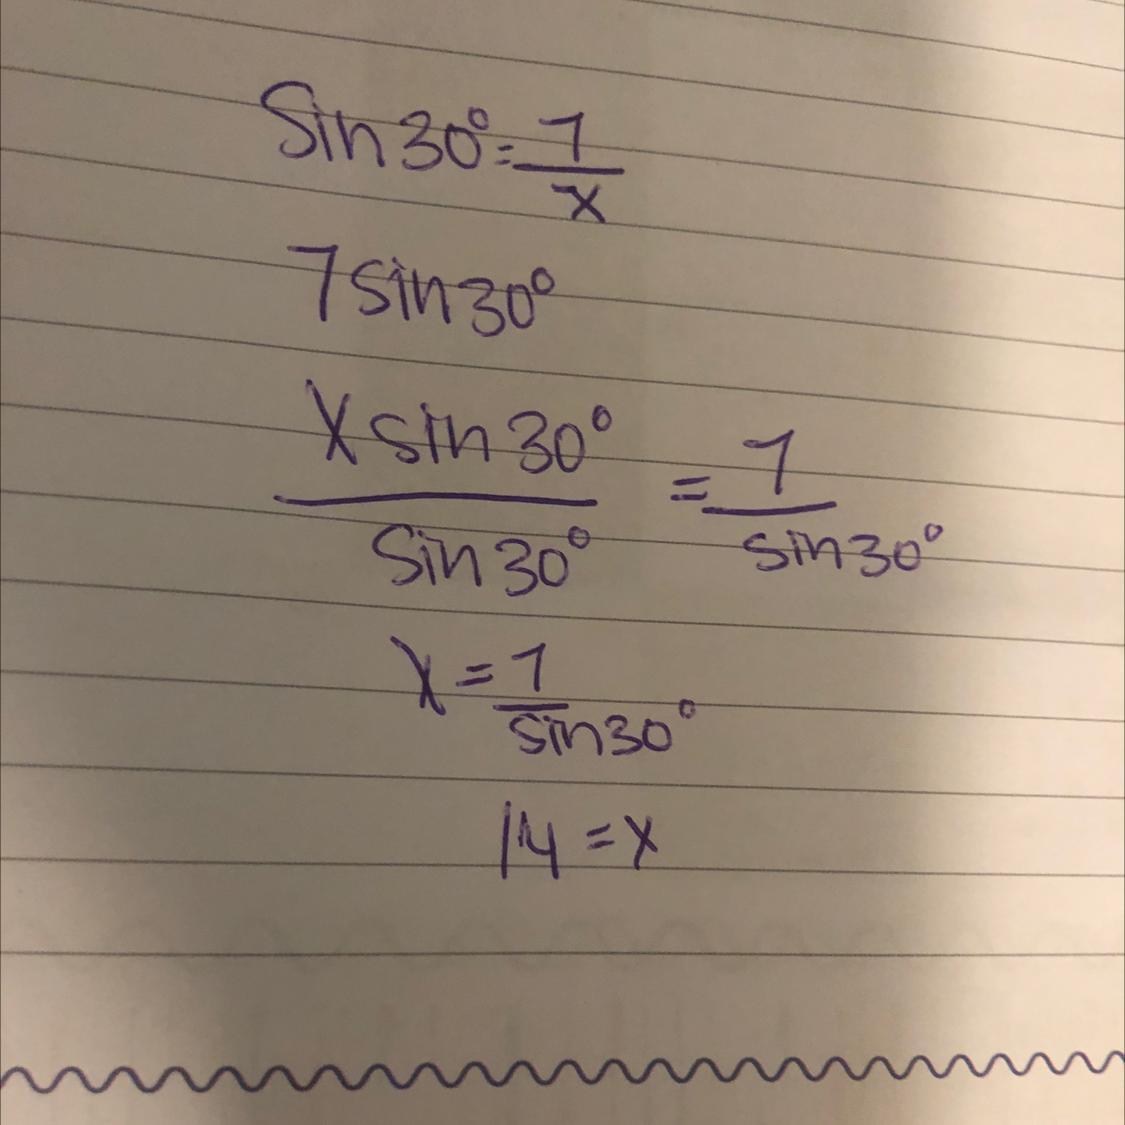 Sin 30° = 7/x
7 sin 30°
x sin 30° / sin 30° = 7 / sin 30°
x = 7 / sin 30°
14 = x